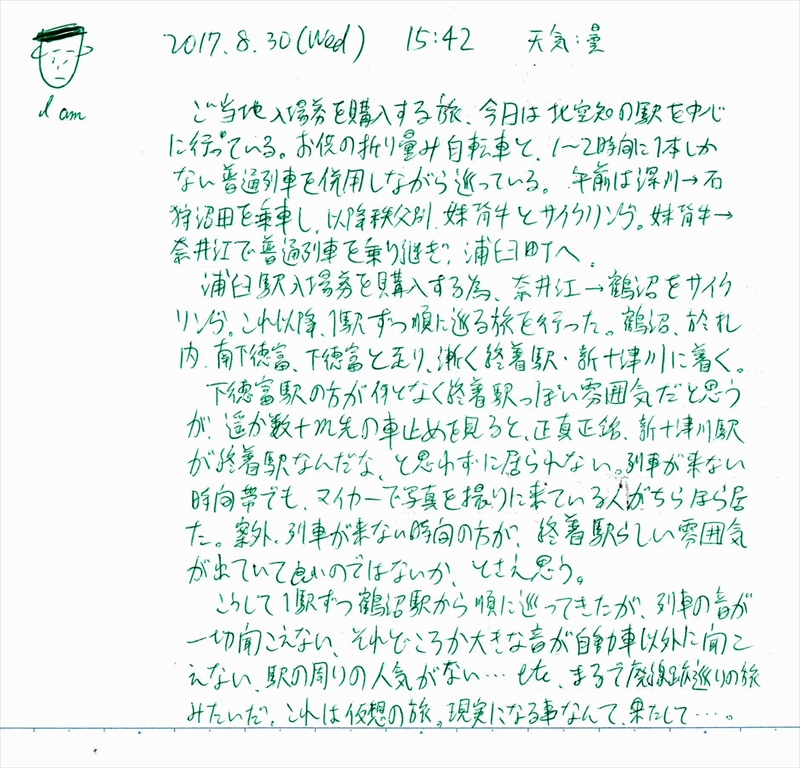 2017.8.30(Wed) 15:42 天気:曇
I am
ご当地入場券を購入する旅、今日は北空知の駅を中心
に行っている。お供の折り畳み自転車と、1〜2時間に1本しか
ない普通列車を併用しながら巡っている。午前は深川→石
狩沼田を乗車し、以降秩父別、妹背牛とサイクリング。妹背牛→
奈井江で普通列車を乗り継ぎ、浦臼町へ。
浦臼駅入場券を購入する為、奈井江→鶴沼をサイク
リング。これ以降、1駅ずつ順に巡る旅を行った。鶴沼、於札
内、南下徳富、下徳富と走り、漸く終着駅・新十津川に着く。
下徳富駅の方が何となく終着駅っぽい雰囲気だと思う
が、遥か数十m先の車止めを見ると、正真正銘、新十津川駅
が終着駅なんだな、と思わずに居られない。列車が来ない
時間帯でも、マイカーで写真を撮りに来ている人がちらほら居
た。案外、列車が来ない時間の方が、終着駅らしい雰囲気
が出ていて良いのではないか、とさえ思う。
こうして1駅ずつ鶴沼駅から順に巡ってきたが、列車の音が
一切聞こえない、それどころか大きな音が自動車以外に聞こ
えない、駅の周りの人気がない…etc、まるで廃線跡巡りの旅
みたいだ。これは仮想の旅。現実になる事なんて、果たして…。